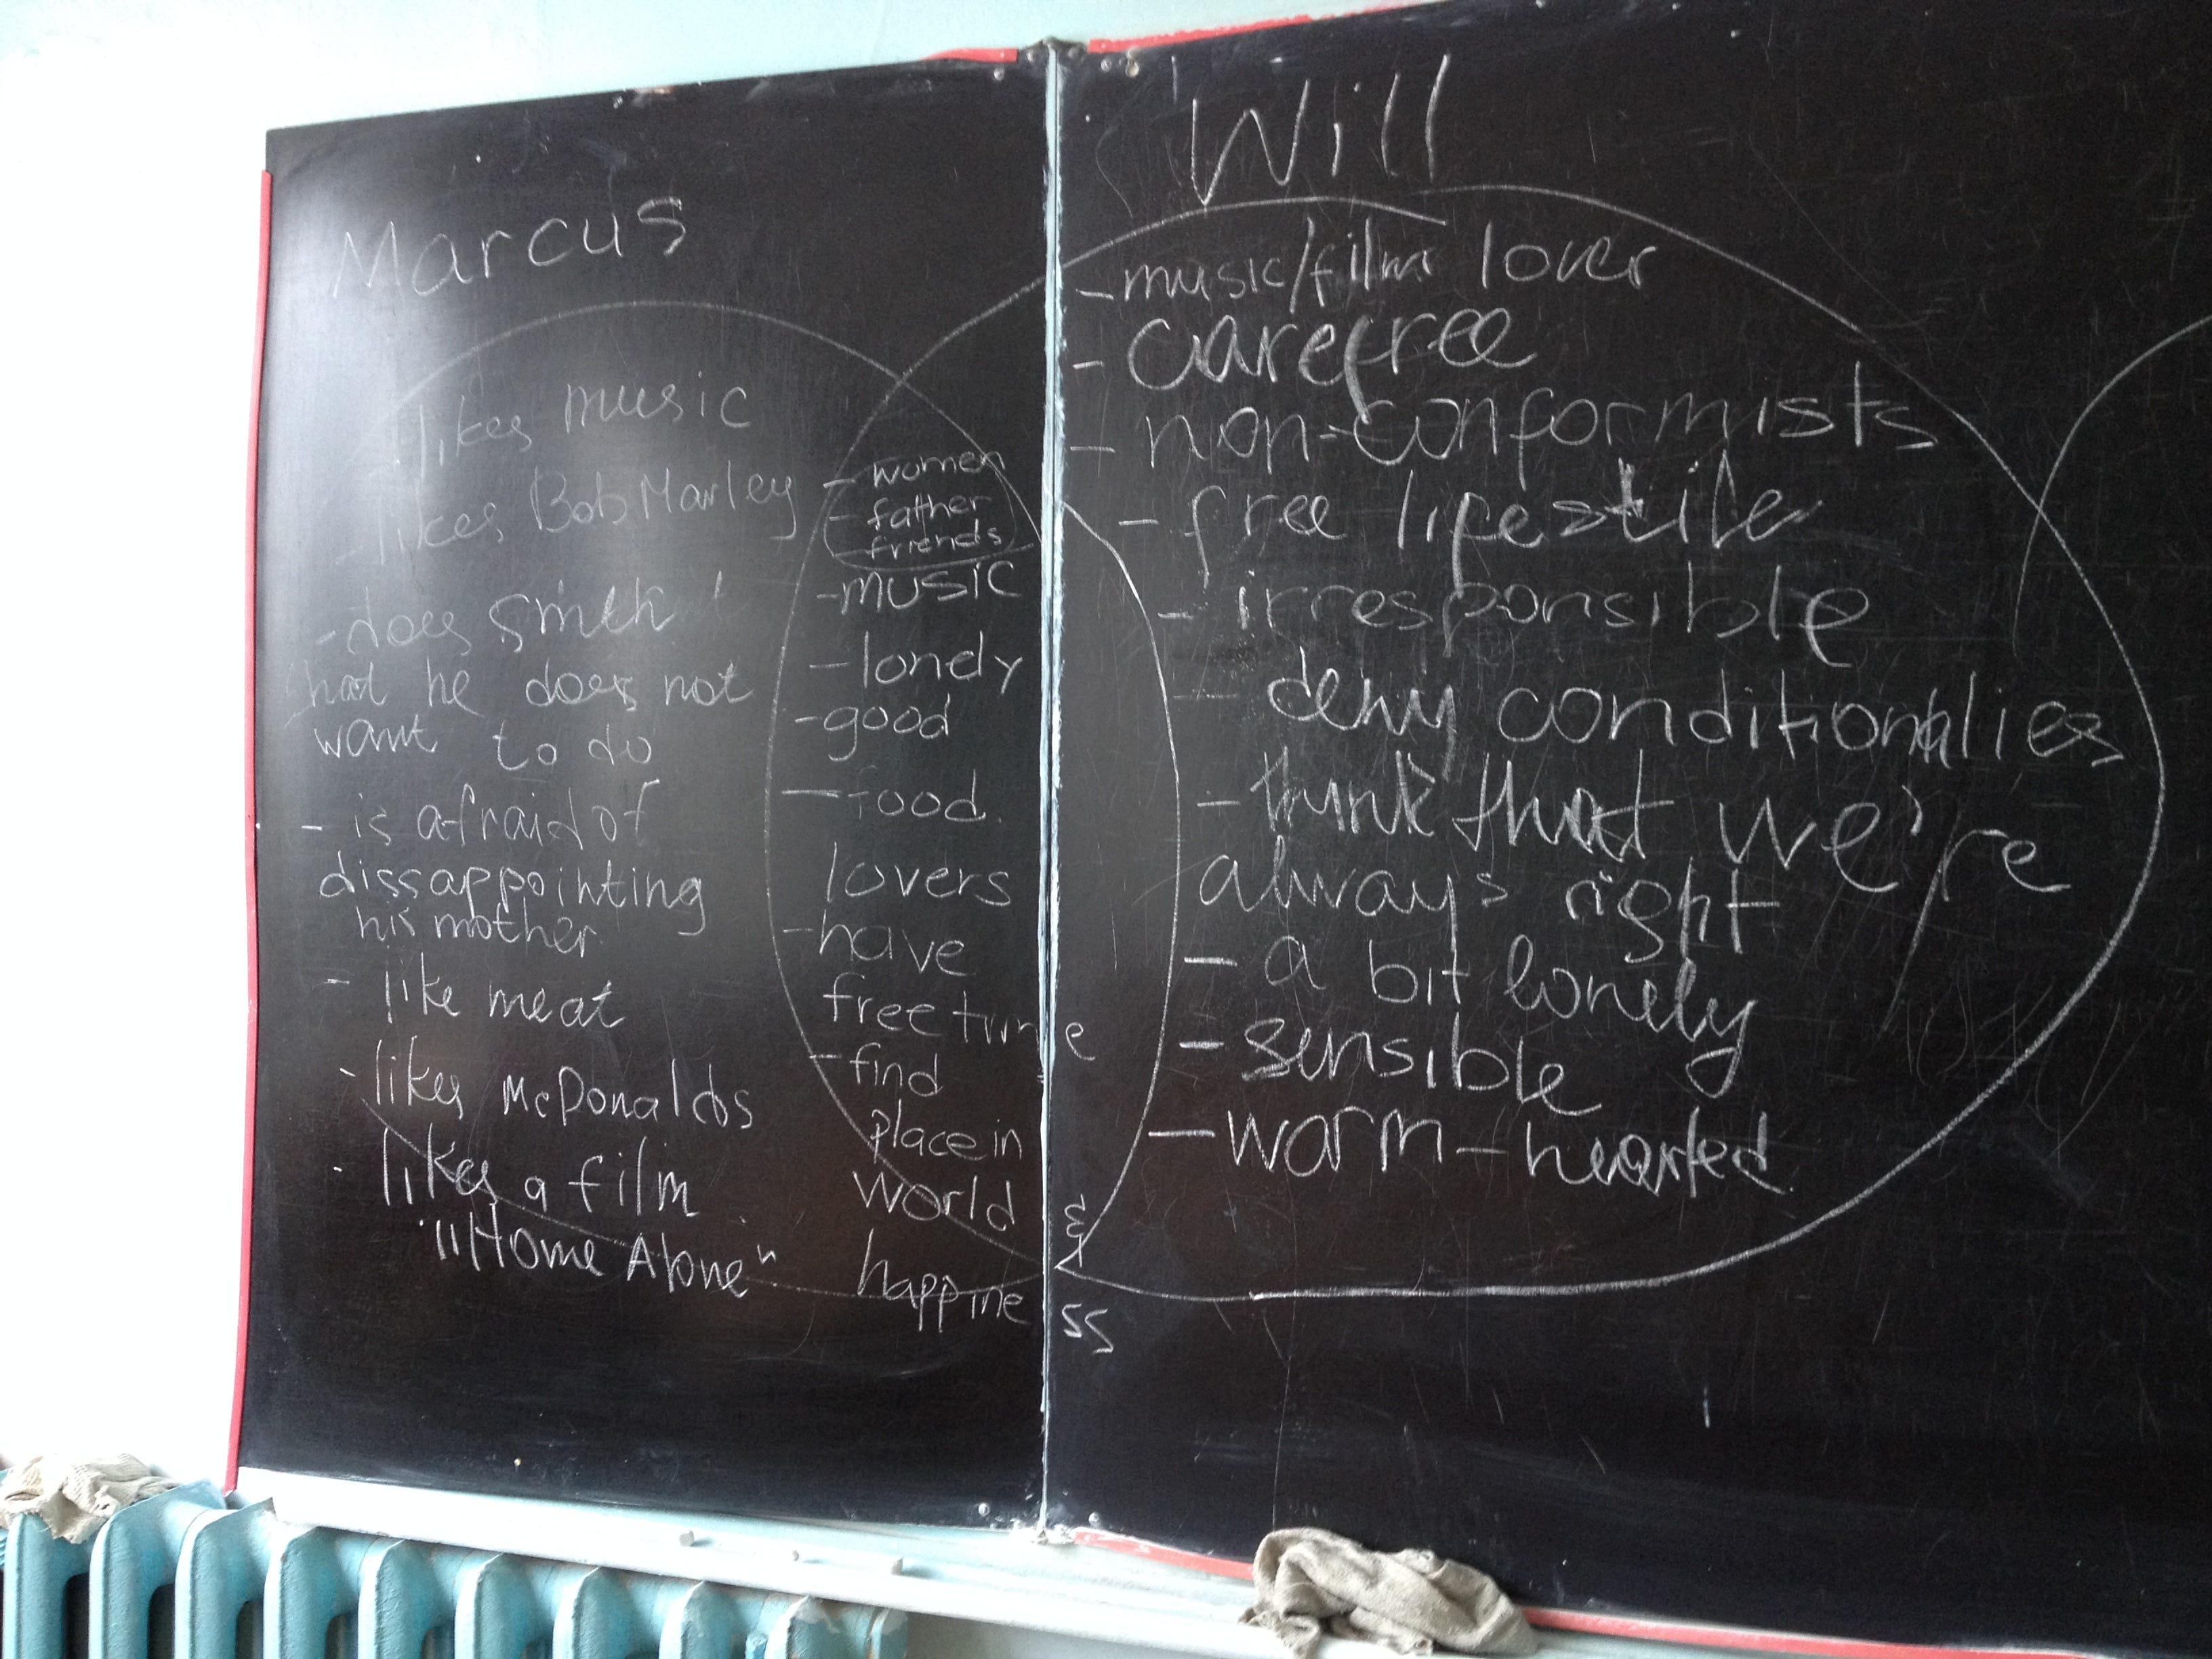 Marcus
likes music
- likes Bob Marley
- does smth
that he does not
want to do
- is afraid of
dissappointing
his mother
- like meat
- likes McDonalds
- likes a film
"Home Alone"
- women
- father
- friends
- music
- lonely
- good
- food
lovers
- have
free time
- find
place in
world &
happiness
Will
- music/film lover
- carefree
- non-conformists
- free lifestile
- irresponsible
- deny conditionalies
- think that we're
always right
- a bit lonely
- sensible
- warm-hearted